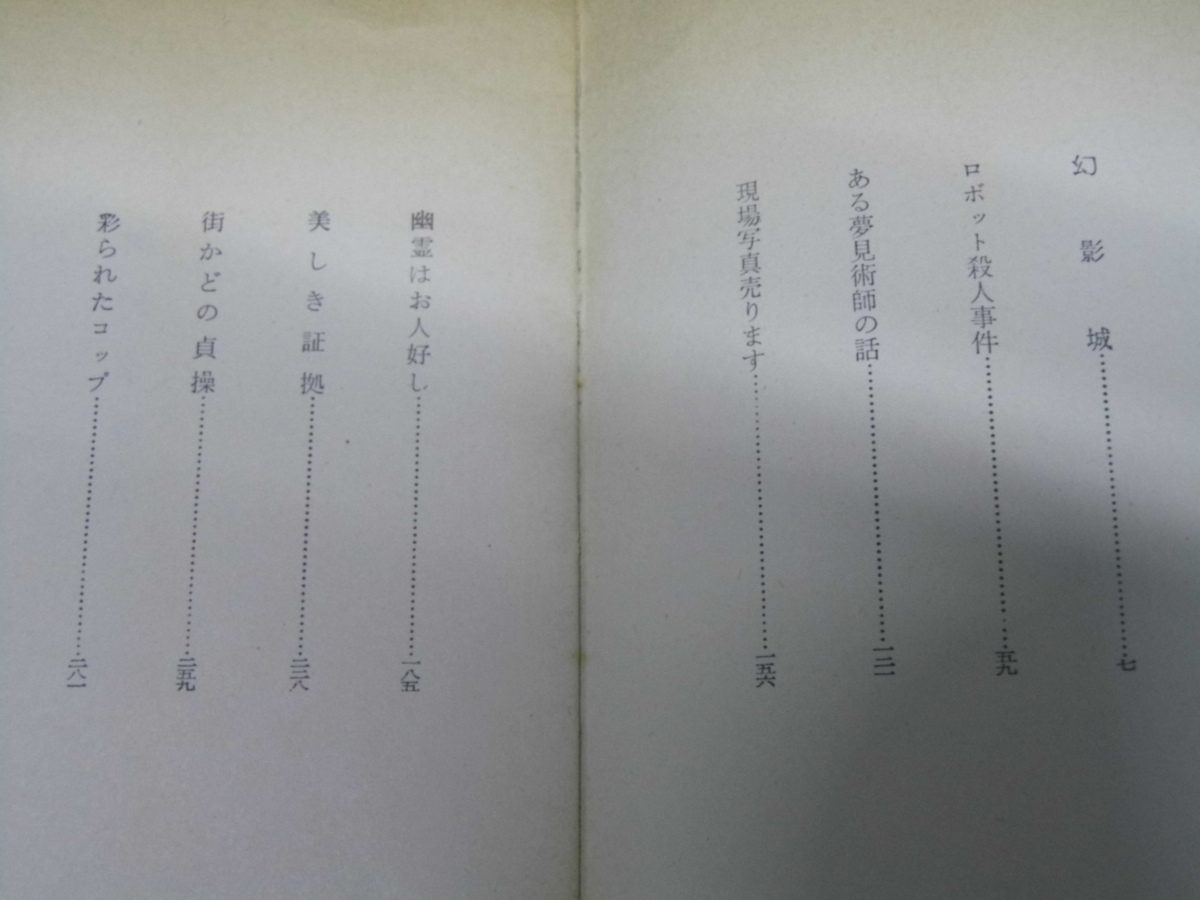 幻影城……七
ロボット殺人事件……五九
ある夢見術師の話……一二一
現場写真売ります……一五六
幽霊はお人好し……一八五
美しき証拠……二三八
街かどの貞操……二五九
彩られたコップ……二八一